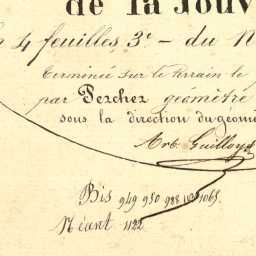 de la Jouv
4 feuilles 3e - du N
Terminée sur le terrain le
par Perchez géomètre
sous la direction du géomè
Arb. Guilloys
Bis 949 950 988 1065
Néant 1122